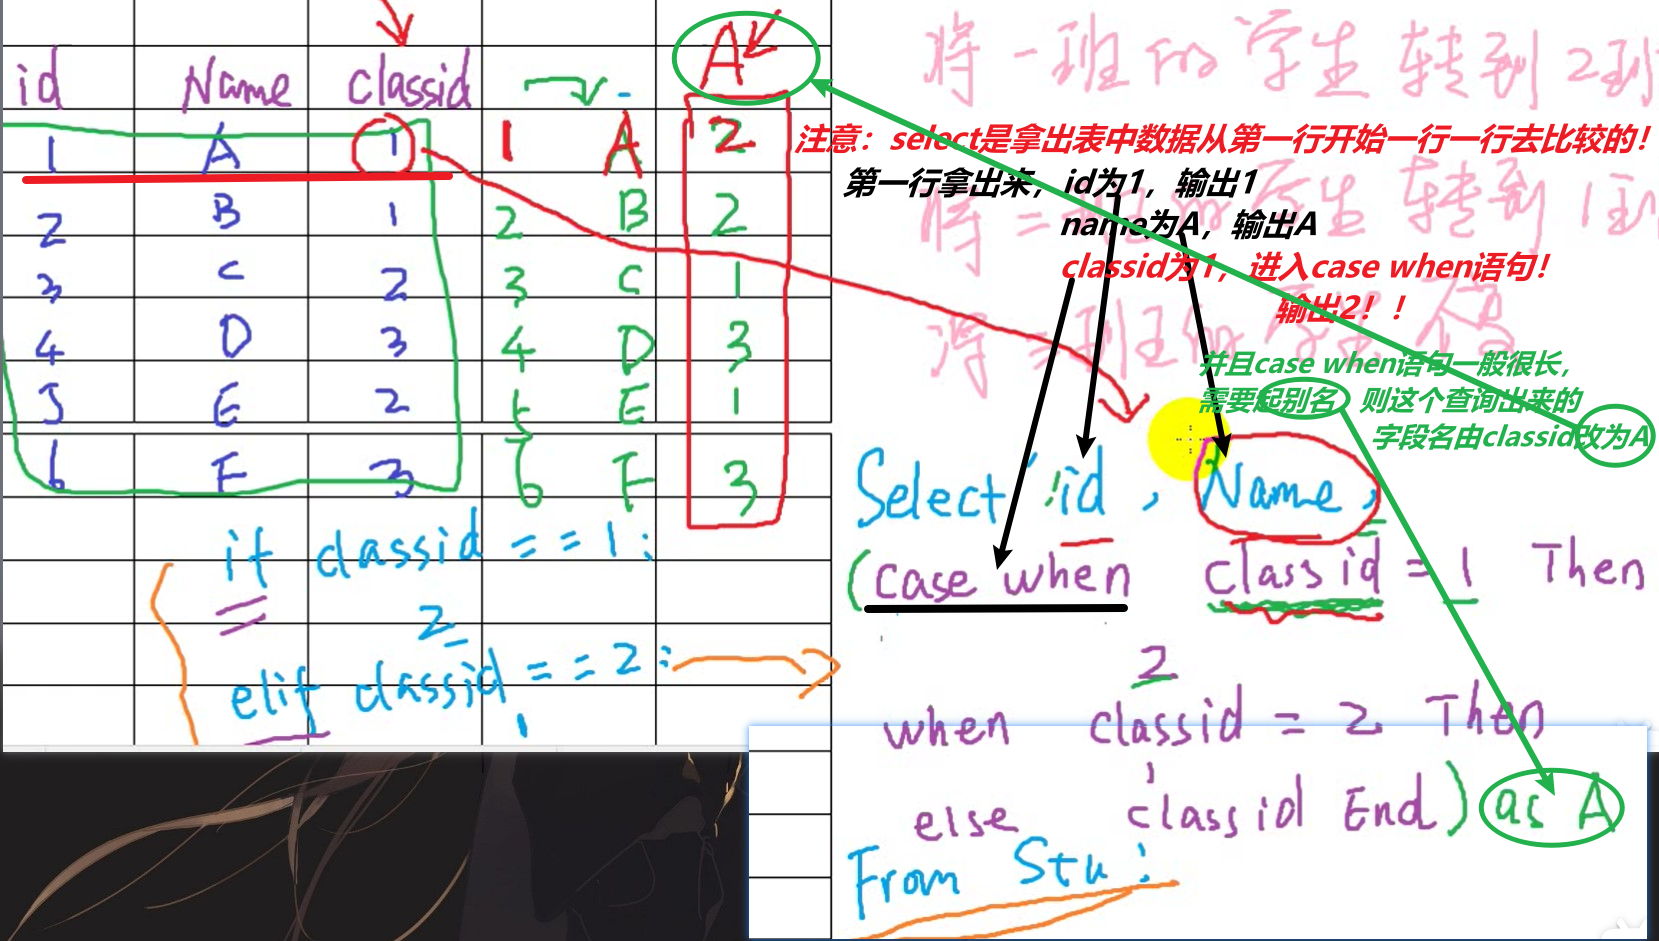 id Name classid A
1 A 1 1 A 2
2 B 1 2 B 2
3 C 2 3 C 1
4 D 3 4 D 3
5 E 2 5 E 1
6 F 3 6 F 3
if classid == 1:
2
elif classid == 2:
1
将一班的学生转到2班
注意：select是拿出表中数据从第一行开始一行一行去比较的！
第一行拿出来，id为1，输出1
将二班的学生转到1班
name为A，输出A
classid为1，进入case when语句！
输出2！！
班的学生不
并且case when语句一般很长，
需要起别名，则这个查询出来的
字段名由classid改为A
Select id, Name,
(case when classid = 1 Then
2
when classid = 2 Then
1
else classid End) as A
From Stu;